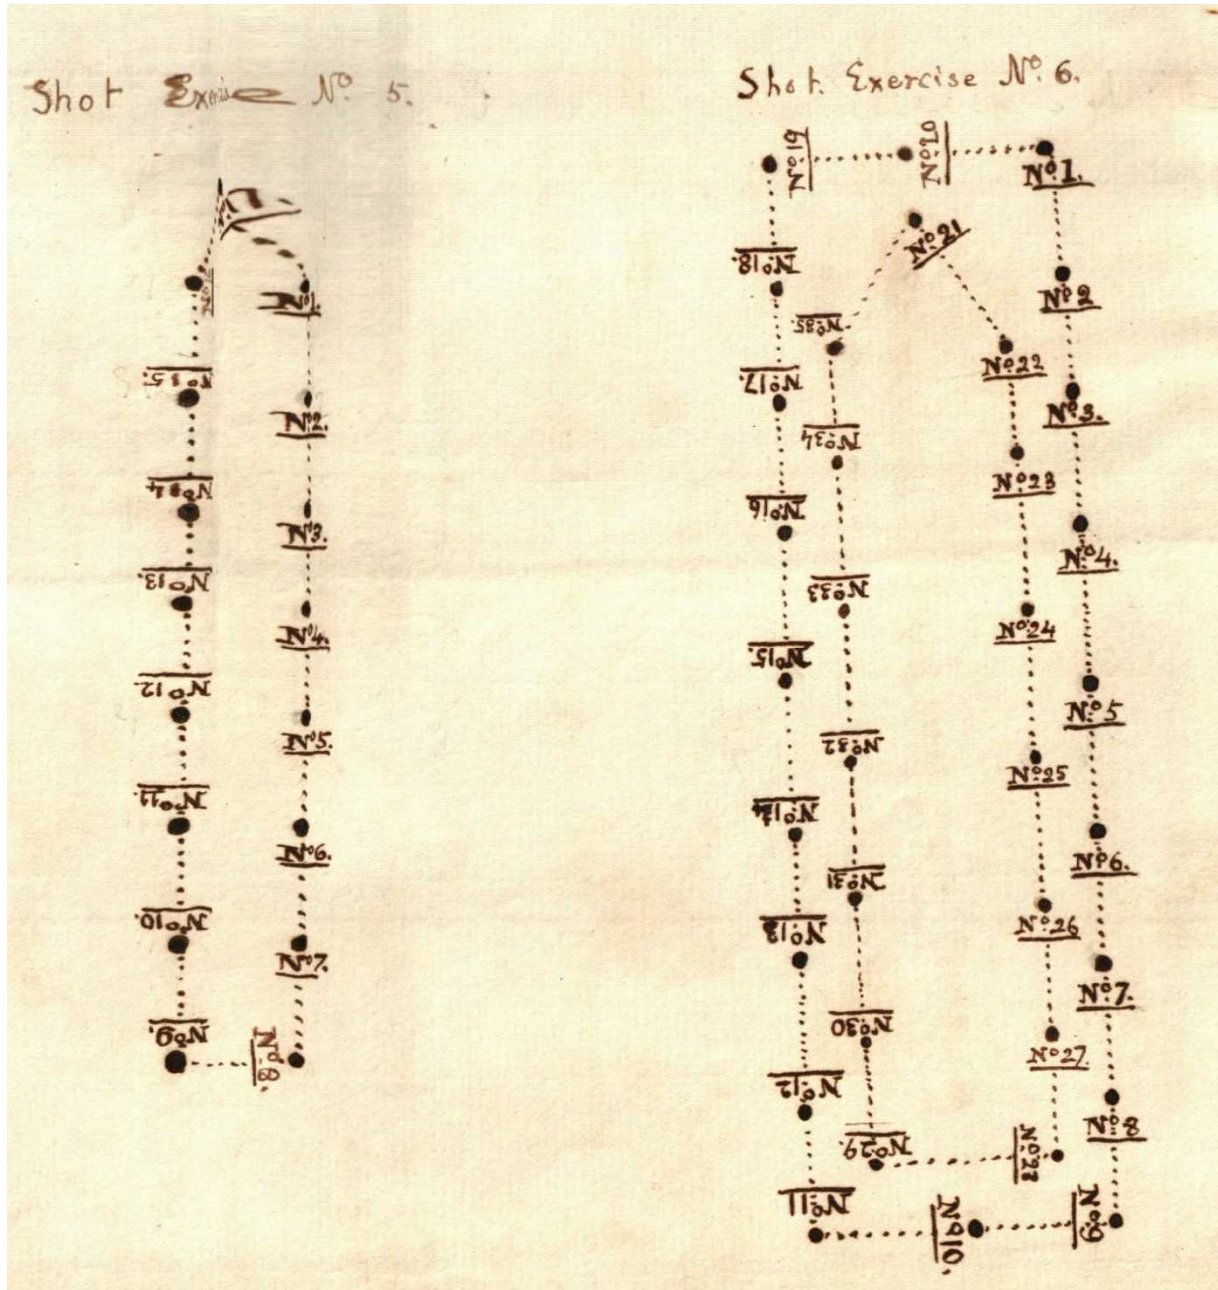 Shot Exercise No. 5.
No. 1.
No. 2.
No. 3.
No. 4.
No. 5.
No. 6.
No. 7.
No. 8.
No. 9.
No. 10.
No. 11.
No. 12.
No. 13.
No. 14.
No. 15.
Shot Exercise No. 6.
No. 1.
No. 2
No. 3.
No. 4.
No. 5
No. 6.
No. 7.
No. 8
No. 9
No. 10.
No. 11
No. 12
No. 13
No. 14
No. 15.
No. 16
No. 17.
No. 18.
No. 19
No. 20
No. 21
No. 22
No. 23
No. 24
No. 25
No. 26
No. 27.
No. 28
No. 29
No. 30
No. 31
No. 32
No. 33
No. 34
No. 35